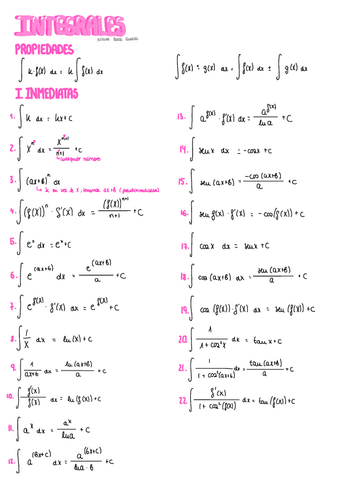 INTEGRALES
PROPIEDADES
∫ k·f(x) dx = k ∫ f(x) dx
∫ f(x) ± g(x) dx = ∫ f(x) dx ± ∫ g(x) dx
I. INMEDIATAS
1. ∫ k dx = kx + C
2. ∫ xⁿ dx = xⁿ⁺¹/n+1 + C
↳ cualquier número
3. ∫ (ax+b)ⁿ dx
4. ∫ (f(x))ⁿ · f'(x) dx = (f(x))ⁿ⁺¹/n+1 + C
5. ∫ eˣ dx = eˣ + C
6. ∫ e^(ax+b) dx = e^(ax+b)/a + C
7. ∫ e^f(x) · f'(x) dx = e^f(x) + C
8. ∫ 1/x dx = ln(x) + C
9. ∫ 1/ax+b dx = ln(ax+b)/a + C
10. ∫ f'(x)/f(x) dx = ln(f(x)) + C
11. ∫ aˣ dx = aˣ/lna + C
12. ∫ a^(bx+c) dx = a^(bx+c)/lna·b + C
13. ∫ a^f(x) · f'(x) dx = a^f(x)/lna + C
14. ∫ senx dx = -cosx + C
15. ∫ sen(ax+b) = -cos(ax+b)/a + C
16. ∫ sen f(x) · f'(x) = -cos(f(x)) + C
17. ∫ cosx dx = senx + C
18. ∫ cos(ax+b) dx = sen(ax+b)/a + C
19. ∫ cos(f(x))·f'(x) dx = sen(f(x)) + C
20. ∫ 1/1+cos²x dx = tanx + C
21. ∫ 1/1+cos²(ax+b) dx = tan(ax+b)/a + C
22. ∫ f'(x)/1+cos²(f(x)) dx = tan(f(x)) + C